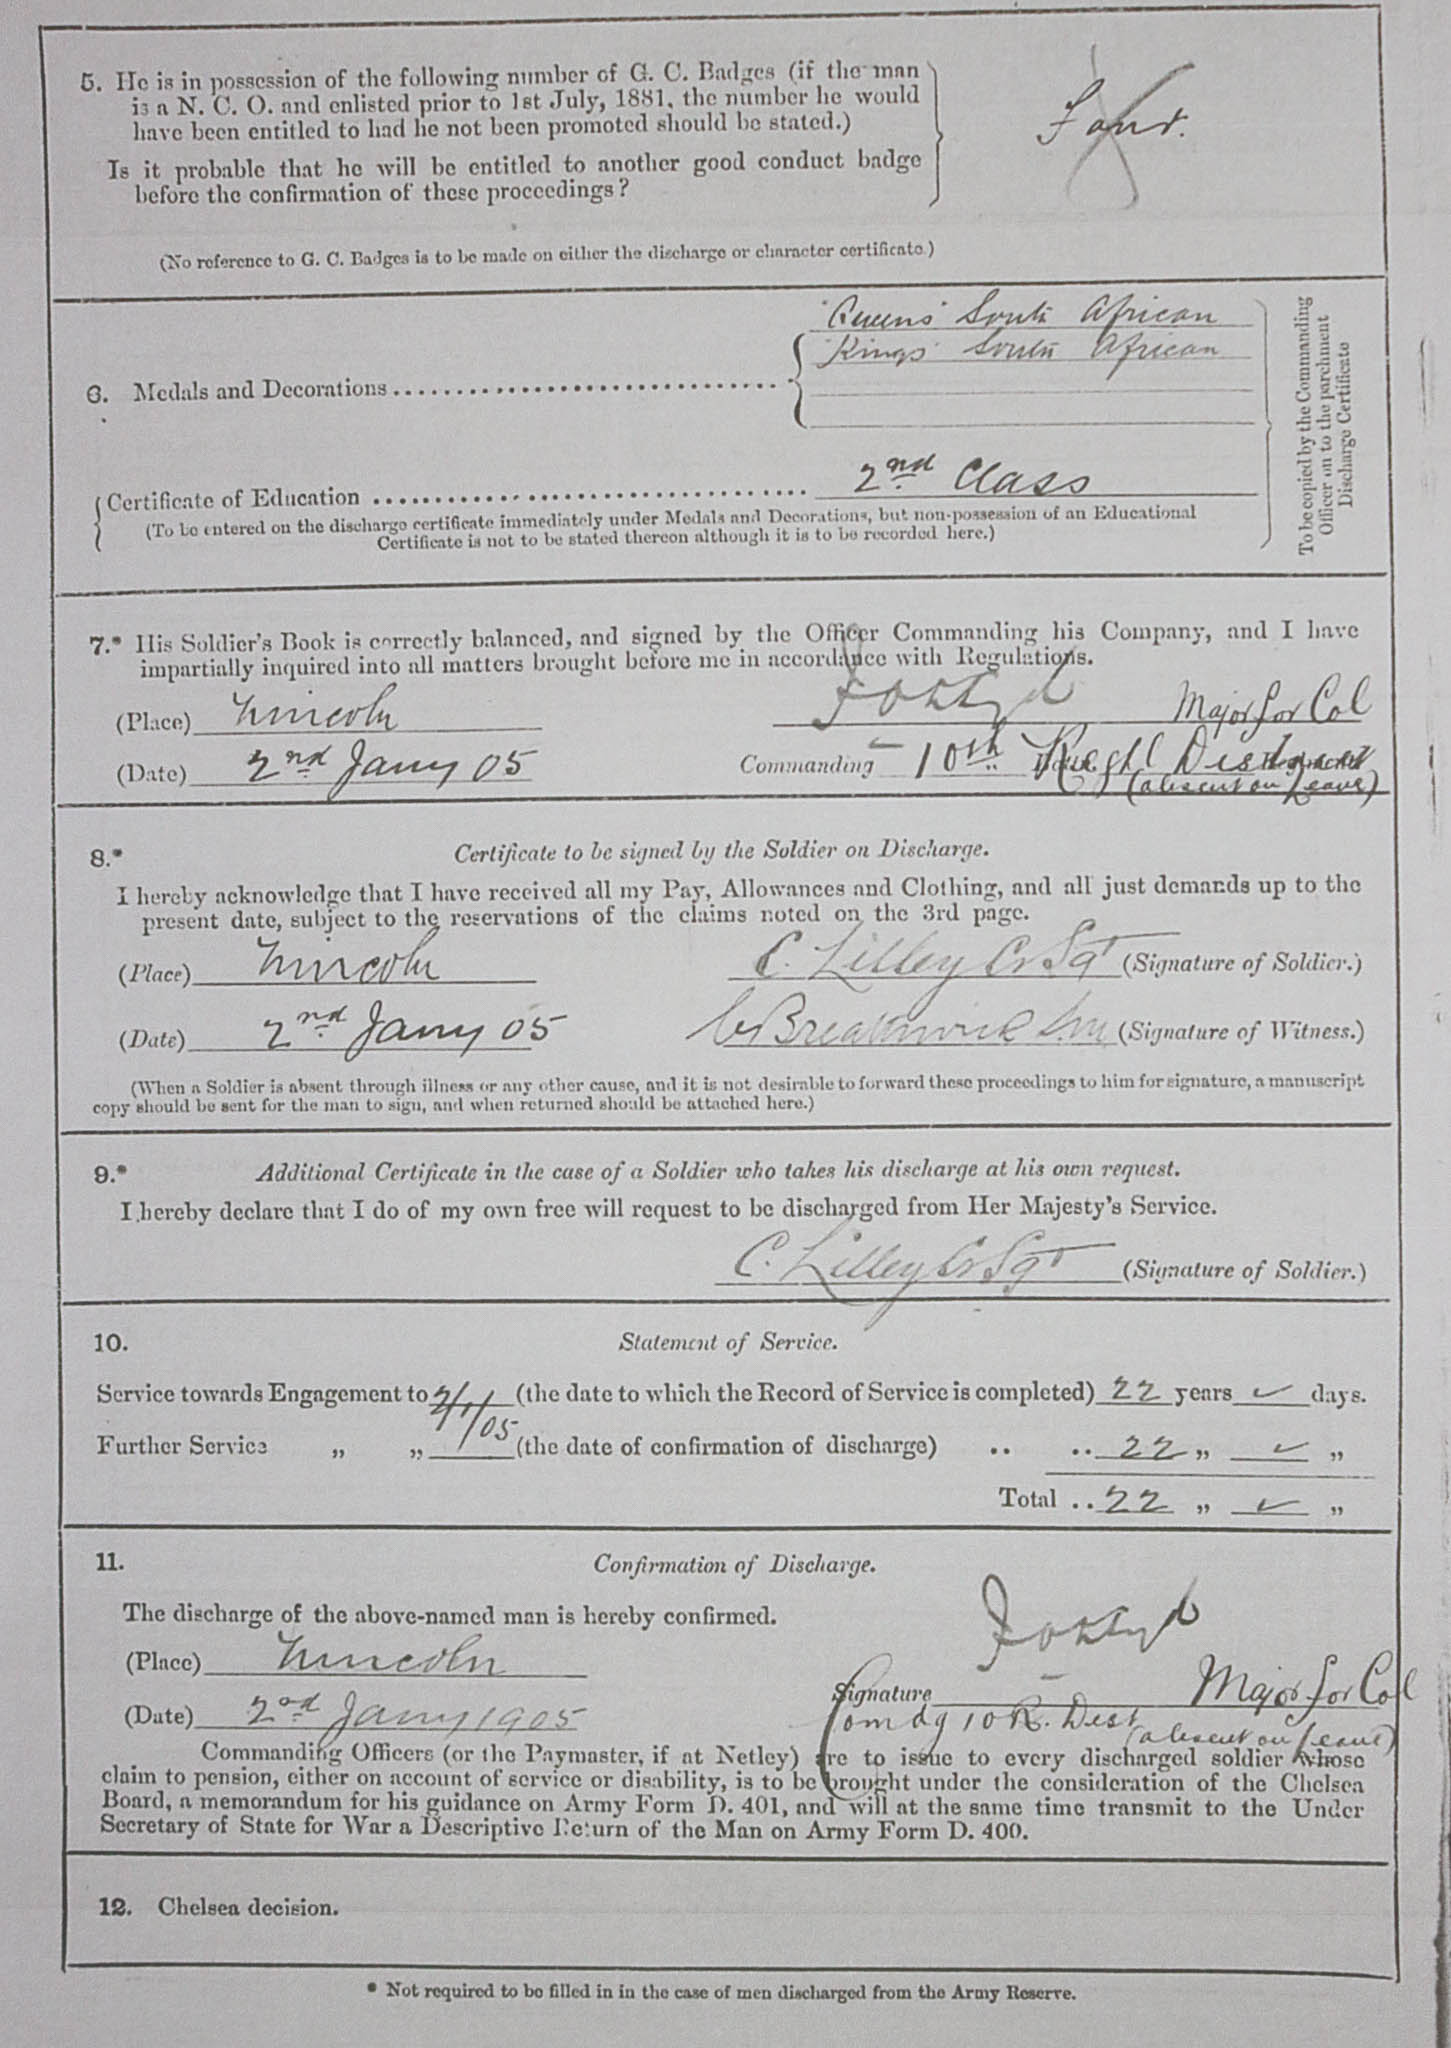 5. He is in possession of the following number of G. C. Badges (if the man
is a N. C. O. and enlisted prior to 1st July, 1881, the number he would
have been entitled to had he not been promoted should be stated.)
Four.
Is it probable that he will be entitled to another good conduct badge
before the confirmation of these proceedings?
(No reference to G. C. Badges is to be made on either the discharge or character certificate.)
"Queens" South African
"Kings" South African
6. Medals and Decorations
To be copied by the Commanding
Officer on to the parchment
Discharge Certificate
Certificate of Education 2nd Class
(To be entered on the discharge certificate immediately under Medals and Decorations, but non-possession of an Educational
Certificate is not to be stated thereon although it is to be recorded here.)
7.* His Soldier's Book is correctly balanced, and signed by the Officer Commanding his Company, and I have
impartially inquired into all matters brought before me in accordance with Regulations.
(Place) Lincoln Major for Col
(Date) 2nd Jany 05 Commanding 10th Regtl Dist
(absent on leave)
8.* Certificate to be signed by the Soldier on Discharge.
I hereby acknowledge that I have received all my Pay, Allowances and Clothing, and all just demands up to the
present date, subject to the reservations of the claims noted on the 3rd page.
(Place) Lincoln C. Lilley Cr Sgt (Signature of Soldier.)
(Date) 2nd Jany 05 (Signature of Witness.)
(When a Soldier is absent through illness or any other cause, and it is not desirable to forward these proceedings to him for signature, a manuscript
copy should be sent for the man to sign, and when returned should be attached here.)
9.* Additional Certificate in the case of a Soldier who takes his discharge at his own request.
I hereby declare that I do of my own free will request to be discharged from Her Majesty's Service.
C. Lilley Cr Sgt (Signature of Soldier.)
10. Statement of Service.
Service towards Engagement to 2/1/05 (the date to which the Record of Service is completed) 22 years ✓ days.
Further Service „ „ (the date of confirmation of discharge) .. .. 22 „ ✓ „
Total .. 22 „ ✓ „
11. Confirmation of Discharge.
The discharge of the above-named man is hereby confirmed.
(Place) Lincoln
Signature Major for Col
(Date) 2nd Jany 1905 Comdg 10 R. Dist
(absent on leave)
Commanding Officers (or the Paymaster, if at Netley) are to issue to every discharged soldier whose
claim to pension, either on account of service or disability, is to be brought under the consideration of the Chelsea
Board, a memorandum for his guidance on Army Form D. 401, and will at the same time transmit to the Under
Secretary of State for War a Descriptive Return of the Man on Army Form D. 400.
12. Chelsea decision.
* Not required to be filled in in the case of men discharged from the Army Reserve.